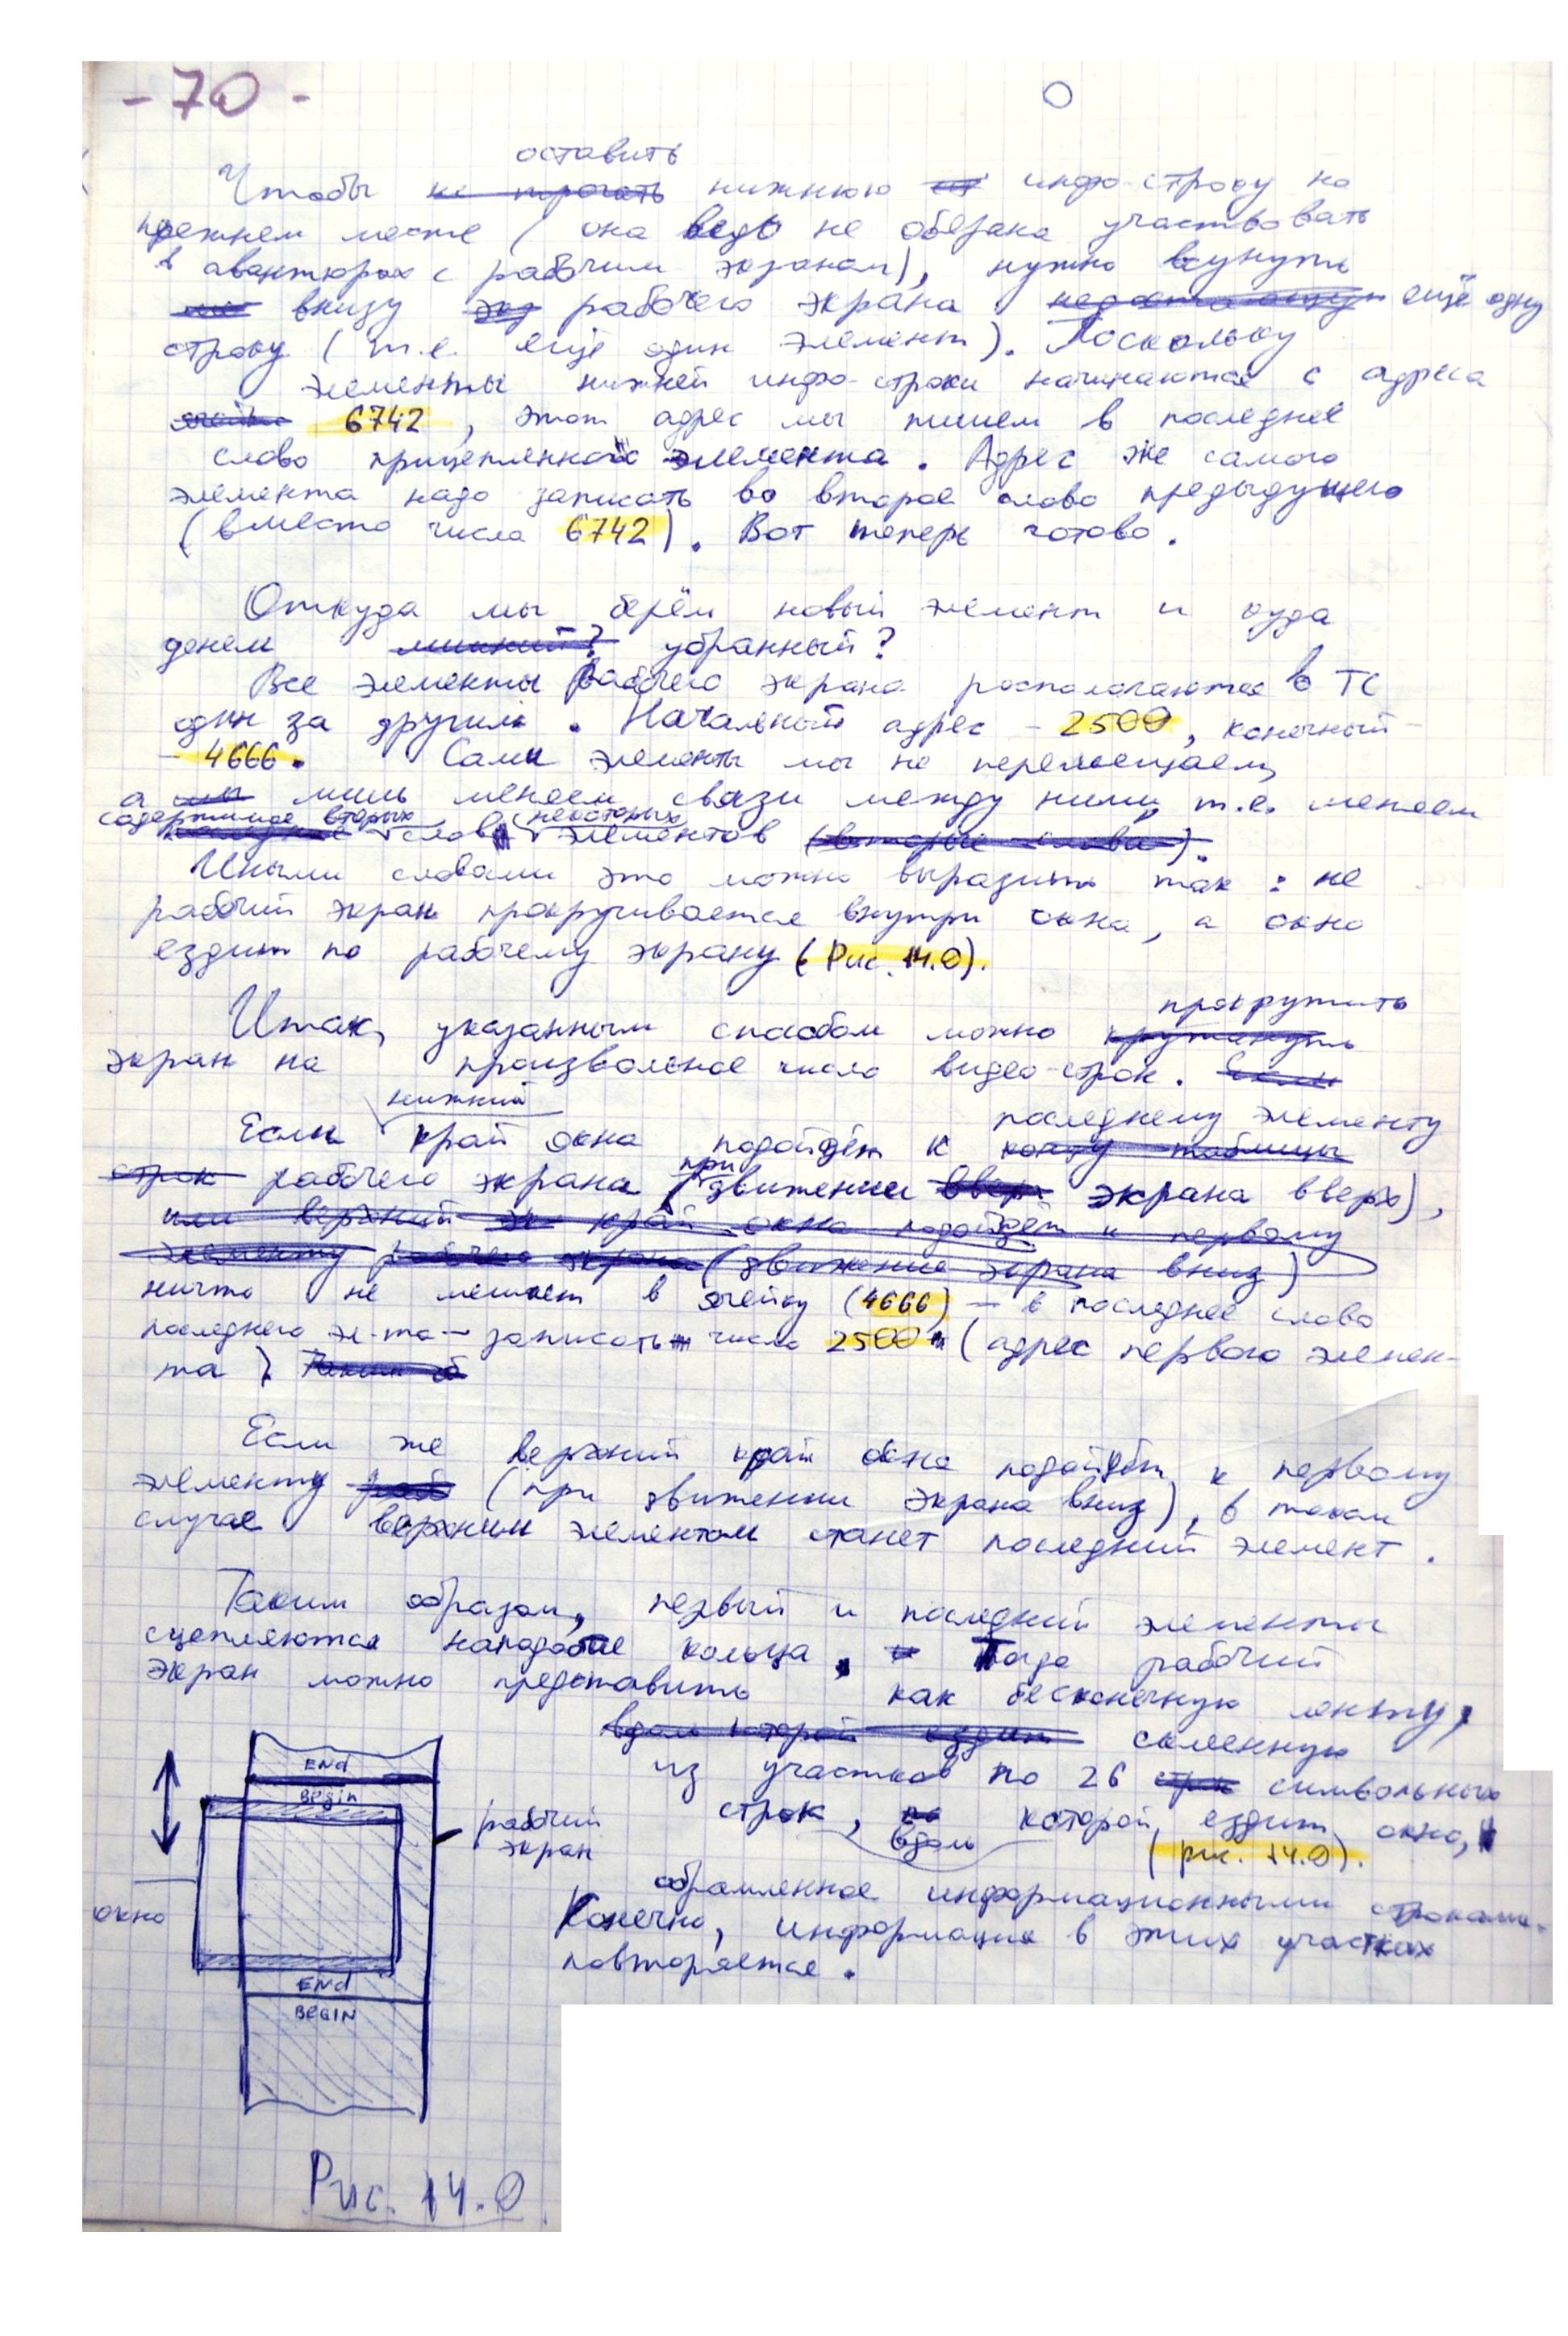 - 70 -
оставить
Чтобы не трогать нижнюю инфо-строку на
прежнем месте ( она ведь не обязана участвовать
в авантюрах с рабочим экраном), нужно всунуть
внизу рабочего экрана недостающую ещё одну
строку ( т.е. ещё один элемент). Поскольку
элементы нижней инфо-строки начинаются с адреса
6742 , этот адрес мы пишем в последнее
слово прицепленного элемента. Адрес же самого
элемента надо записать во второе слово предыдущего
(вместо числа 6742). Вот теперь готово.
Откуда мы берём новый элемент и куда
денем лишний? убранный?
Все элементы рабочего экрана располагаются в ТС
один за другим. Начальный адрес - 2500, конечный -
- 4666. Сами элементы мы не перемещаем,
а мы лишь меняем связи между ними, т.е. меняем
содержимое вторых некоторых
последнее слов элементов (вторые слова).
Иными словами это можно выразить так : не
рабочий экран прокручивается внутри окна, а окно
ездит по рабочему экрану (Рис. 14.0).
прокрутить
Итак, указанным способом можно крутануть
экран на произвольное число видео-строк. Если
нижний
последнему элементу
Если край окна подойдёт к концу таблицы
при
строк рабочего экрана (движении вверх экрана вверх),
или верхний эк край окна подойдёт к первому
элементу рабочего экрана (движение экрана вниз)
ничто не мешает в ячейку (4666) — в последнее слово
последнего эл-та — записать число 2500 (адрес первого элемен-
та ) Таким об
Если же верхний край окна подойдёт к первому
элементу раб (при движении экрана вниз), в таком
случае верхним элементом станет последний элемент.
Таким образом, первый и последний элементы
сцепляются наподобие кольца, и Тогда рабочий
экран можно представить как бесконечную ленту,
вдоль которой ездит склеенную
из участков по 26 стр символьных
строк, вдоль которой ездит окно,
(рис. 14.0).
обрамленное информационными строками.
Конечно, информация в этих участках
повторяется.
END
Begin
рабочий
экран
окно
END
BEGIN
Рис. 14.0